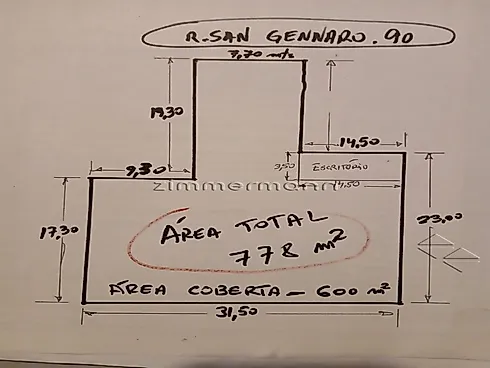 R. SAN GENNARO. 90
7,70 m/c
19,30
14,50
3,50
ESCRITÓRIO
14,50
9,30
zimmermann
17,30
ÁREA TOTAL
778 m²
23,00
ÁREA COBERTA - 600 m²
31,50